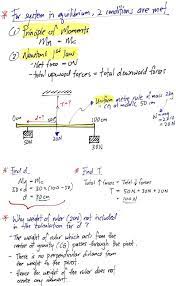 * For system in equilibrium, 2 conditions are met
① Principle of Moments
② Newton's 1st law
- Net force = 0N
- total upward forces = total downward forces
Uniform metre rule of mass 2kg
T = ?
0cm
d
50cm
100cm
50N
20N
30N
* Find d.
* Find T.
Total ↑ forces = Total ↓ forces
T = 50N + 20N + 30N
= 100N
* Why weight of ruler (20N) not included
in the calculation for d ?
- The weight of ruler which acts from the
center of gravity (CG) passes through the pivot.
- There is no perpendicular distance from
the weight to the pivot.
- Hence the weight of the ruler does not
create any moment.